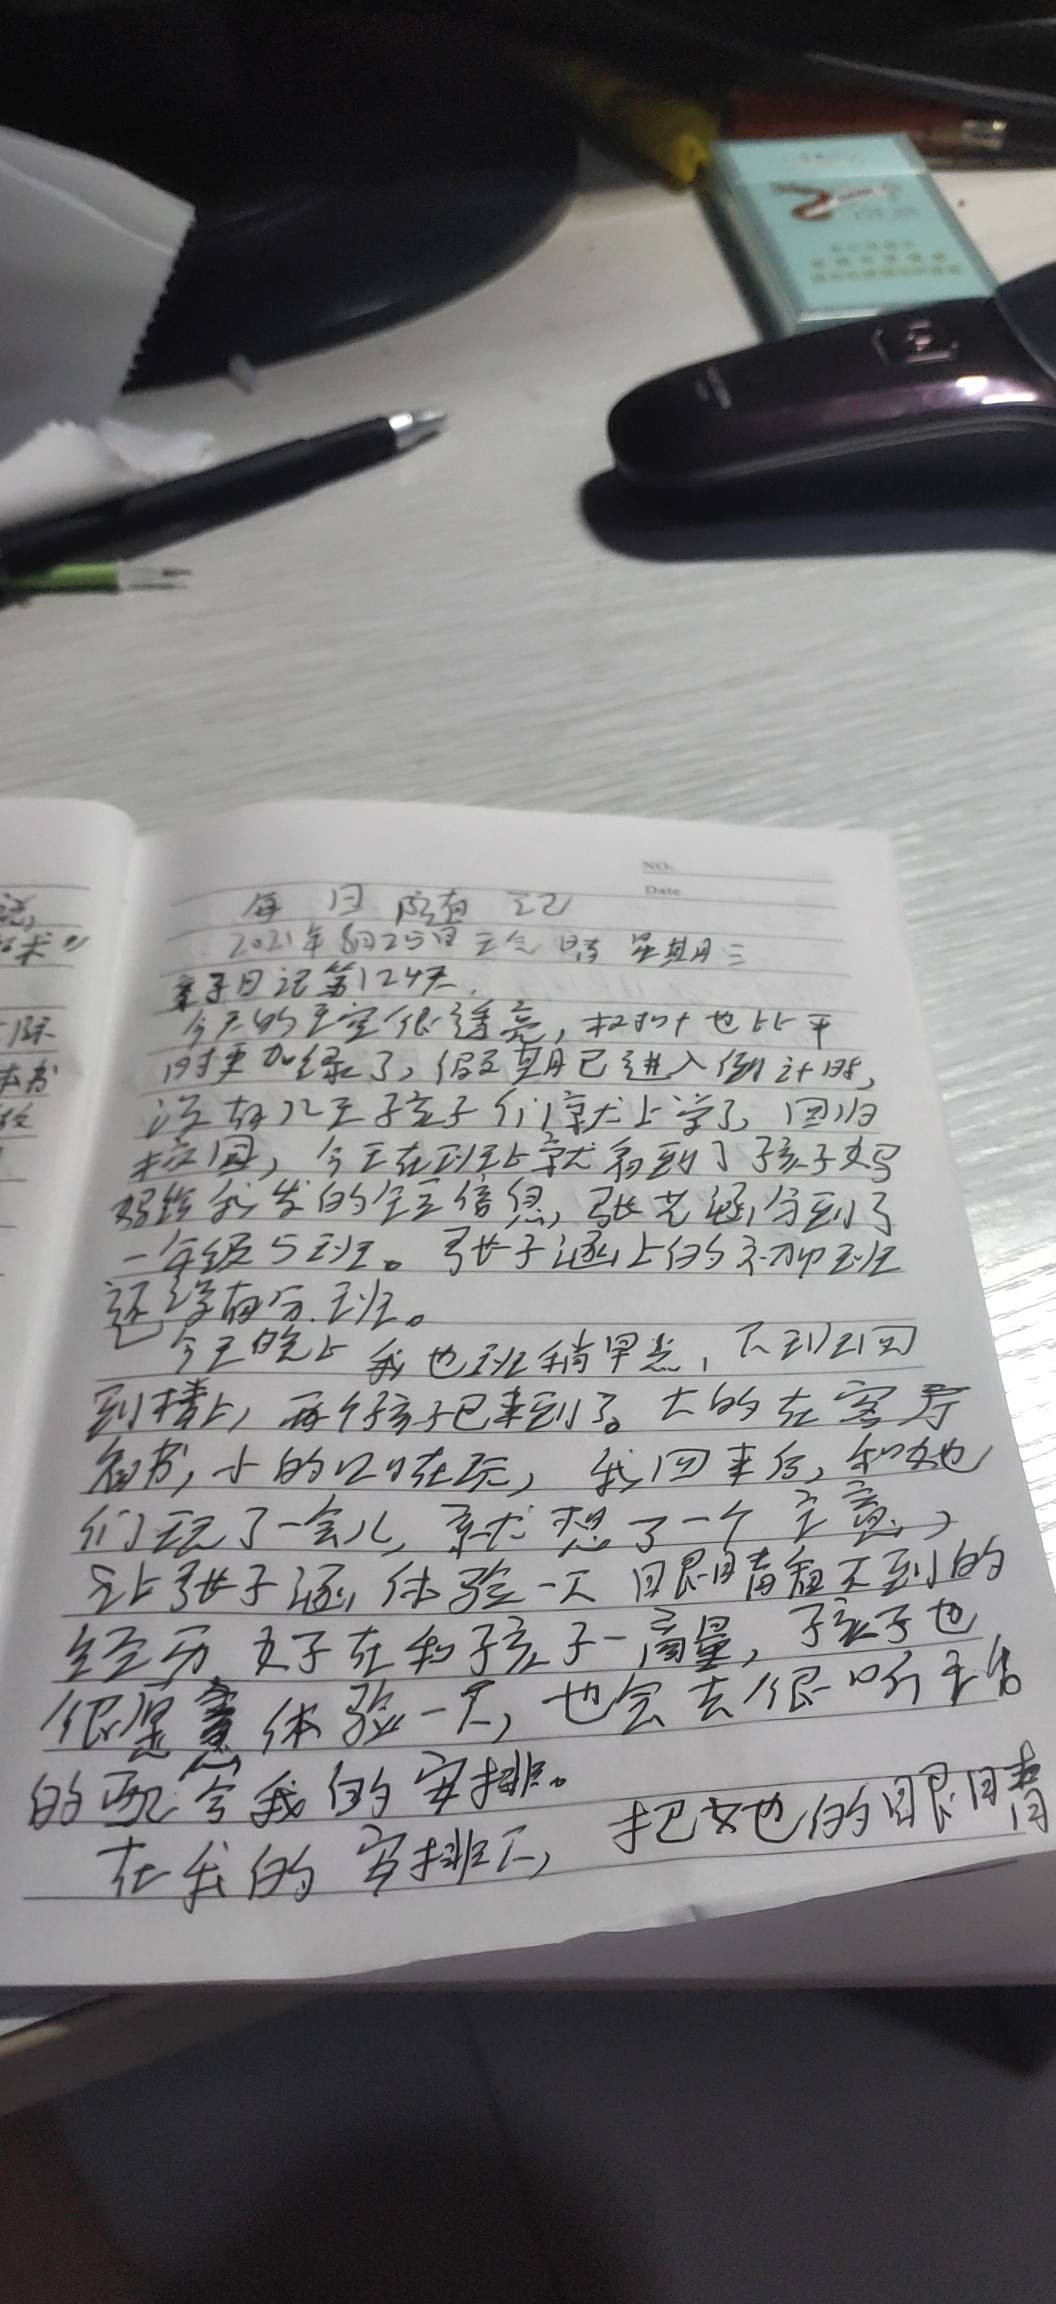 NO.
Date
每日随记
2021年8月25日 天气 晴 星期三
亲子日记第124天.
今天的天空很透亮，树叶也比平
时更加绿了，假期已进入倒计时，
没有几天孩子们就上学了，回归
校园，今天在班上就看到了孩子妈
妈给我发的信息，张艺涵分到了
一年级5班。张子涵上的班
还没有分班。
今天晚上我也班稍早点，不到回
到楼上，两个孩子已来到了。大的在客厅
看书，小的在玩，我回来后，和她
们玩了一会儿，就想了一个主意，
让张子涵体验一天眼睛看不到的
经历，好在和孩子一商量，孩子也
很愿意体验一天，也会去很听
的配合我的安排。
在我的安排下，把她的眼睛